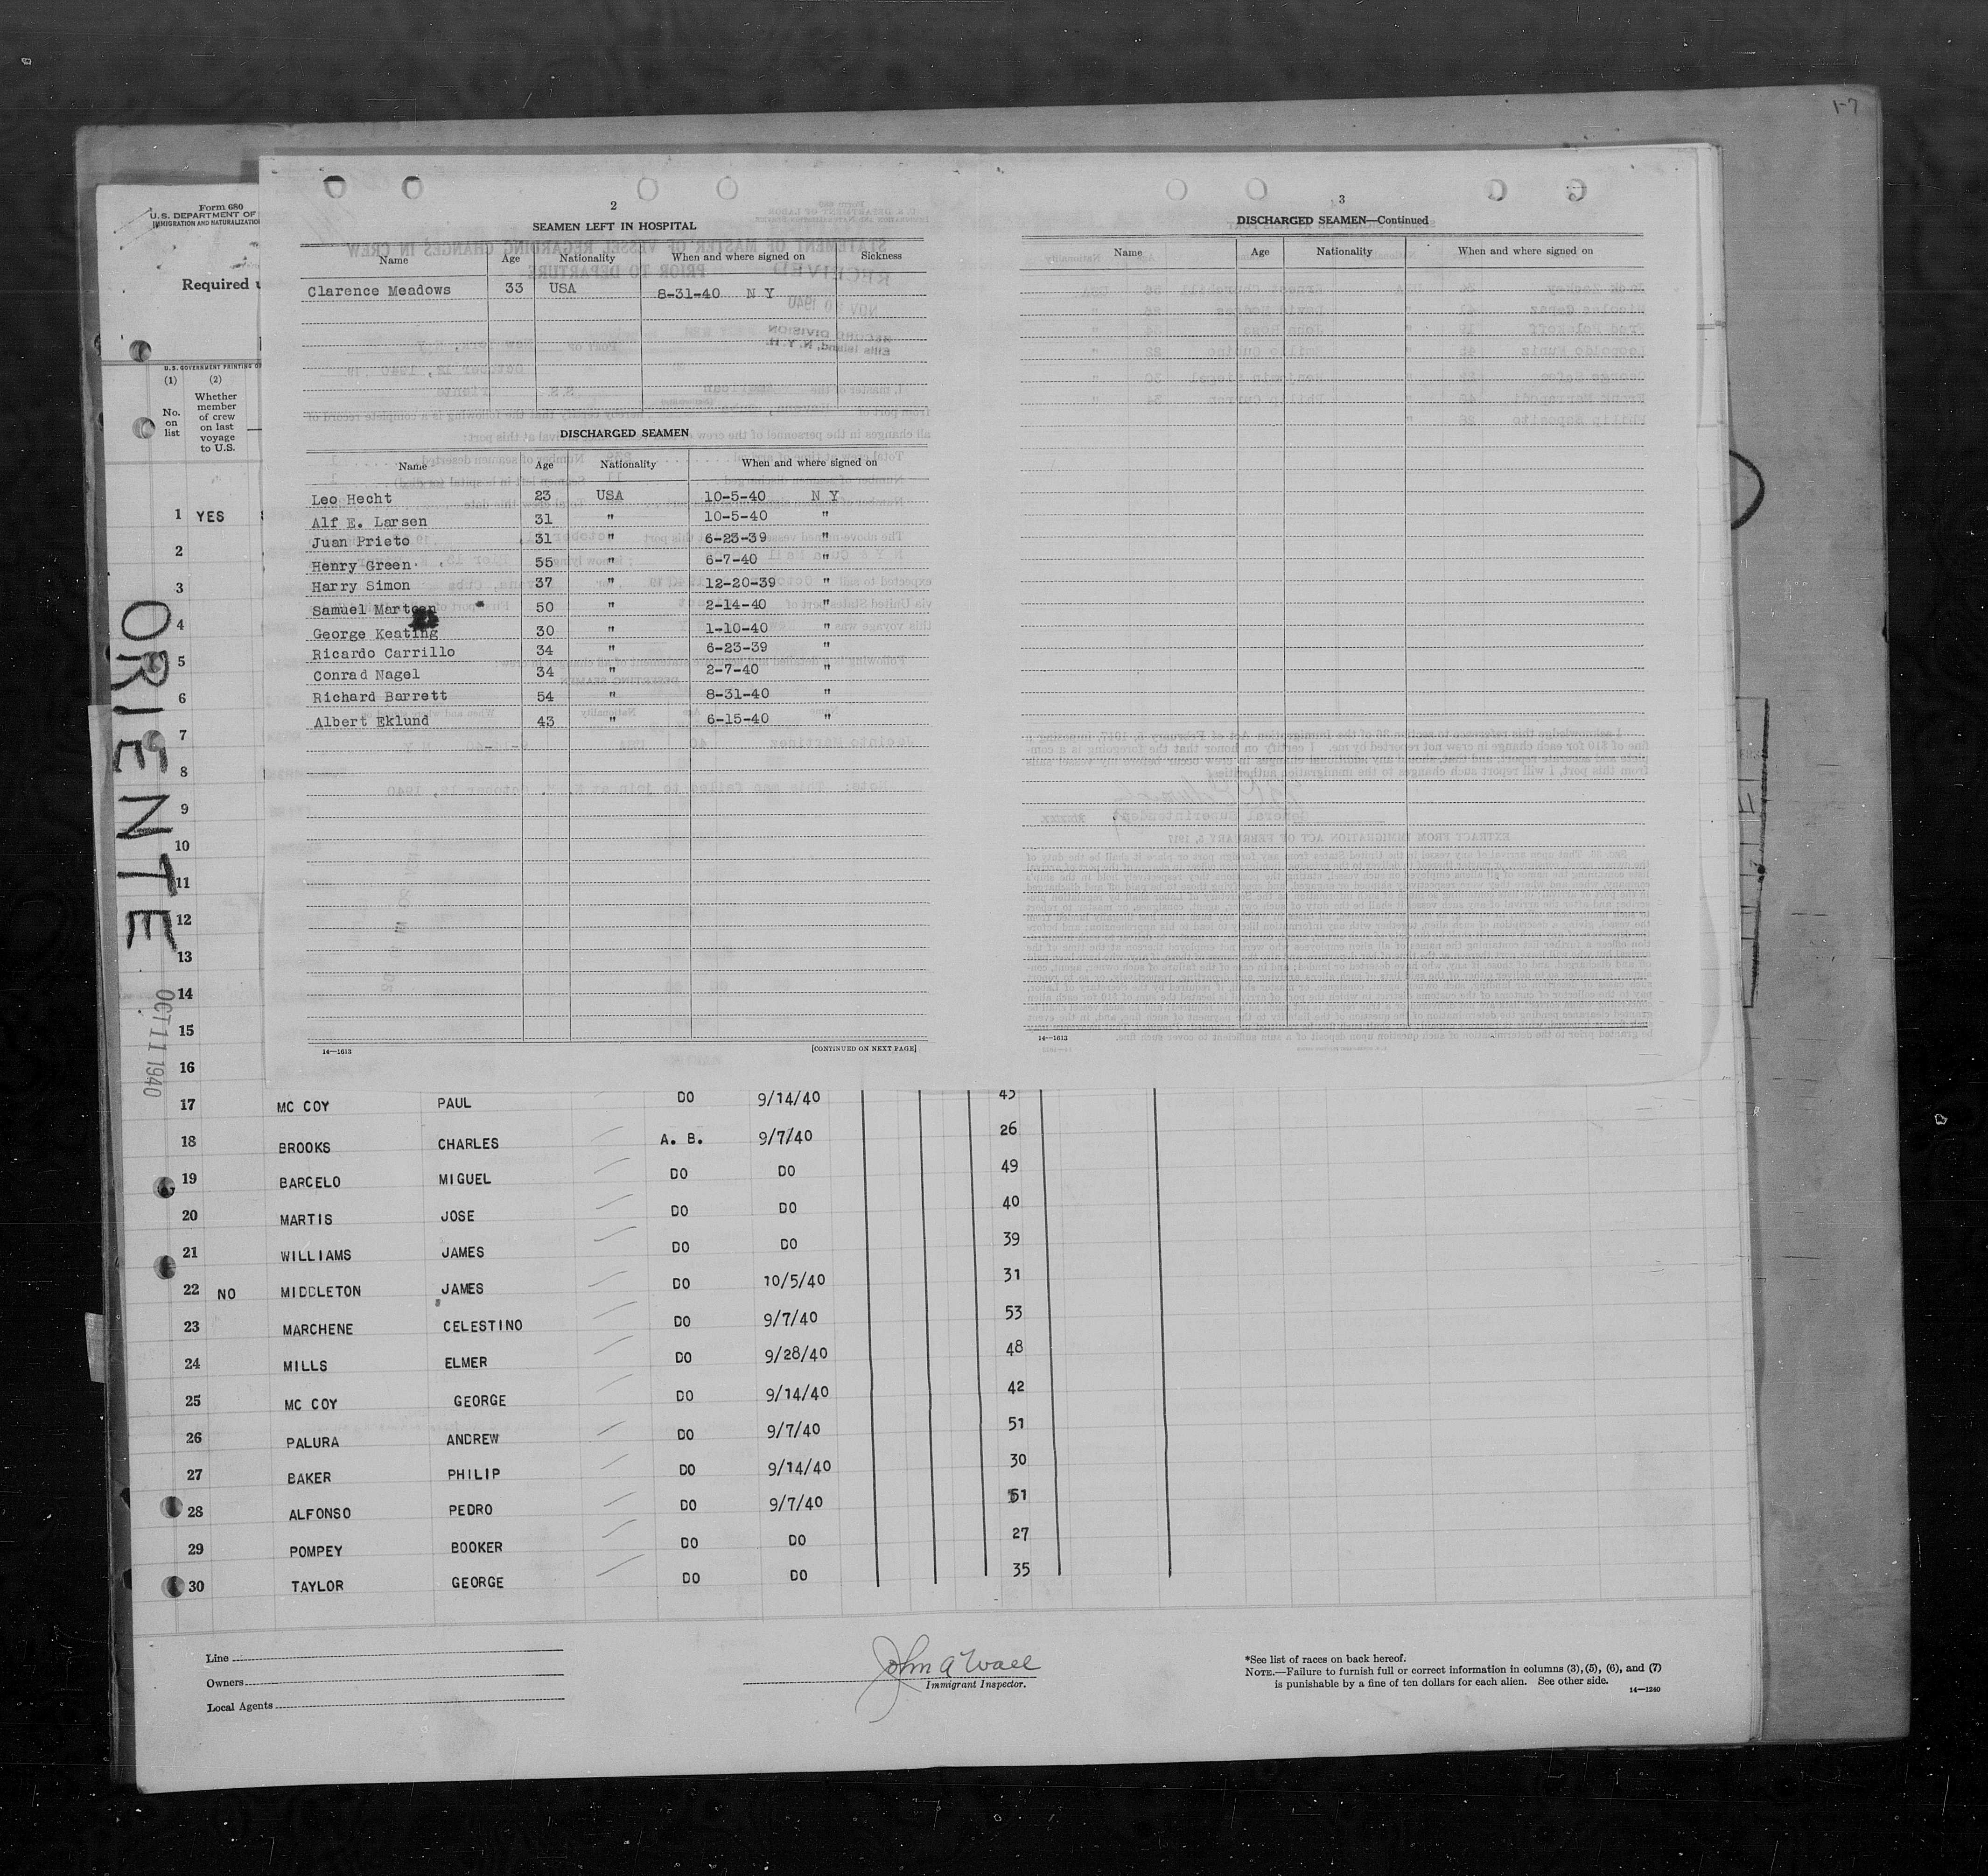 1-7
Form 680
U.S. DEPARTMENT OF
IMMIGRATION AND NATURALIZATIO
Required
U.S. GOVERNMENT PRINTING OF
(1) (2)
No. on list
Whether member of crew on last voyage to U.S.
ORIENTE
OCT 11 1940
2
SEAMEN LEFT IN HOSPITAL
Name Age Nationality When and where signed on Sickness
Clarence Meadows 33 USA 8-31-40 N Y
DISCHARGED SEAMEN
Name Age Nationality When and where signed on
Leo Hecht 23 USA 10-5-40 N Y
Alf E. Larsen 31 " 10-5-40 "
Juan Prieto 31 " 6-23-39 "
Henry Green 55 " 6-7-40 "
Harry Simon 37 " 12-20-39 "
Samuel 50 " 2-14-40 "
George Keating 30 " 1-10-40 "
Ricardo Carrillo 34 " 6-23-39 "
Conrad Nagel 34 " 2-7-40 "
Richard Barrett 54 " 8-31-40 "
Albert Eklund 43 " 6-15-40 "
14—1613 [CONTINUED ON NEXT PAGE]
3
DISCHARGED SEAMEN—Continued
Name Age Nationality When and where signed on
14—1613
1 YES
2
3
4
5
6
7
8
9
10
11
12
13
14
15
16
17 MC COY PAUL DO 9/14/40 45
18 BROOKS CHARLES A. B. 9/7/40 26
19 BARCELO MIGUEL DO DO 49
20 MARTIS JOSE DO DO 40
21 WILLIAMS JAMES DO DO 39
22 NO MIDDLETON JAMES DO 10/5/40 31
23 MARCHENE CELESTINO DO 9/7/40 53
24 MILLS ELMER DO 9/28/40 48
25 MC COY GEORGE DO 9/14/40 42
26 PALURA ANDREW DO 9/7/40 51
27 BAKER PHILIP DO 9/14/40 30
28 ALFONSO PEDRO DO 9/7/40 51
29 POMPEY BOOKER DO DO 27
30 TAYLOR GEORGE DO DO 35
Line
Owners
Local Agents
John A Wall
Immigrant Inspector.
*See list of races on back hereof.
NOTE.—Failure to furnish full or correct information in columns (3), (5), (6), and (7)
is punishable by a fine of ten dollars for each alien. See other side.
14—1240